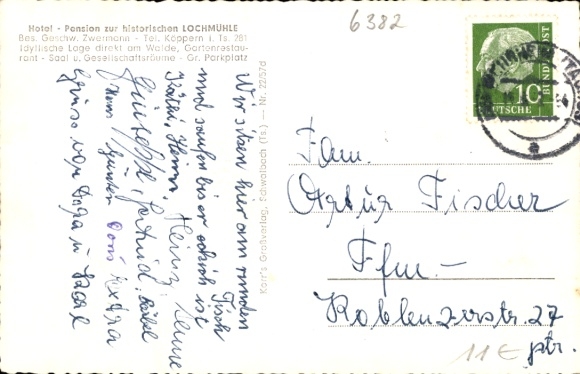 Hotel - Pension zur historischen LOCHMÜHLE
Bes. Geschw. Zwermann - Tel. Köppern i. Ts. 281
Idyllische Lage direkt am Walde, Gartenrestau-
rant - Saal u. Gesellschaftsräume - Gr. Parkplatz
6382
10
DEUTSCHE BUNDESPOST
Wir sitzen hier am runden
Tisch
und saufen bis er eckich ist
Käthi, Heini, Heinz,
Giuseppe, Gertrud,
Günter
Gruss von
Karl's Großverlag, Schwalbach (Ts.) — Nr. 22/57d
Fam.
Artur Fischer
Ffm. –
Koblenzerstr. 27
ptr.
11 €